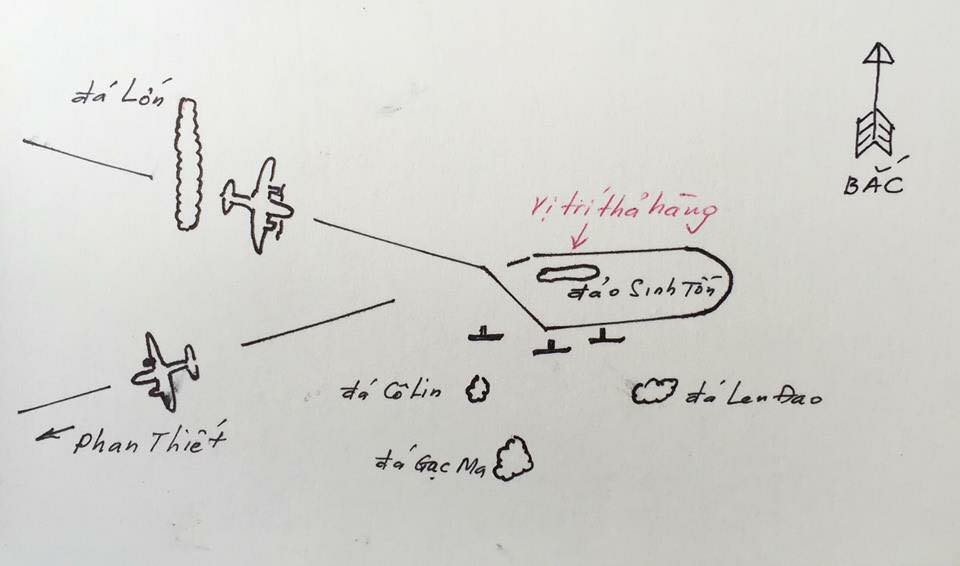 đá Lớn
BẮC
Vị trí thả hàng
đảo Sinh Tồn
đá Cô Lin
đá Len Đao
Phan Thiết
đá Gạc Ma